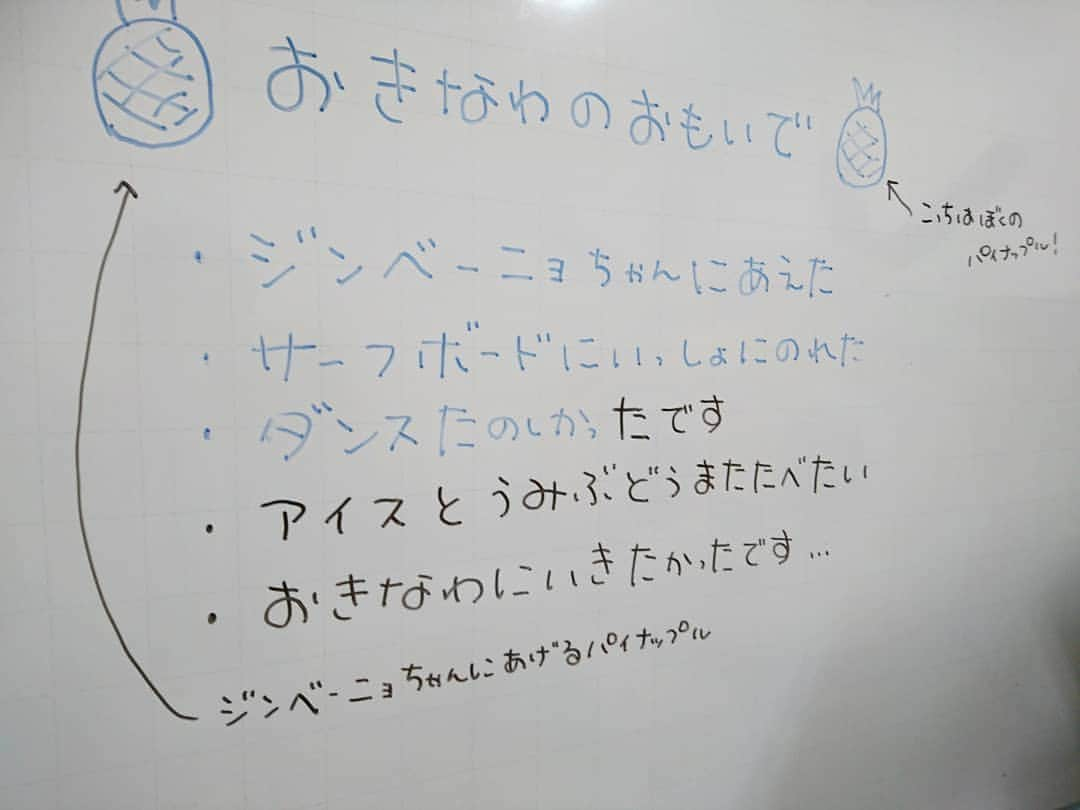 おきなわのおもいで
こっちはぼくの
パイナップル!
・ジンベーニョちゃんにあえた
・サーフボードにいっしょにのれた
・ダンスたのしかったです
・アイスとうみぶどうまたたべたい
・おきなわにいきたかったです…
ジンベーニョちゃんにあげるパイナップル